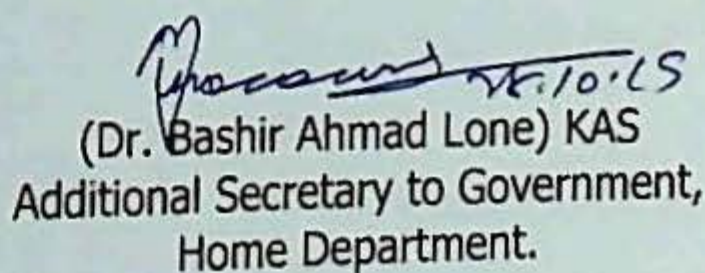 (Dr. Bashir Ahmad Lone) KAS
Additional Secretary to Government,
Home Department.